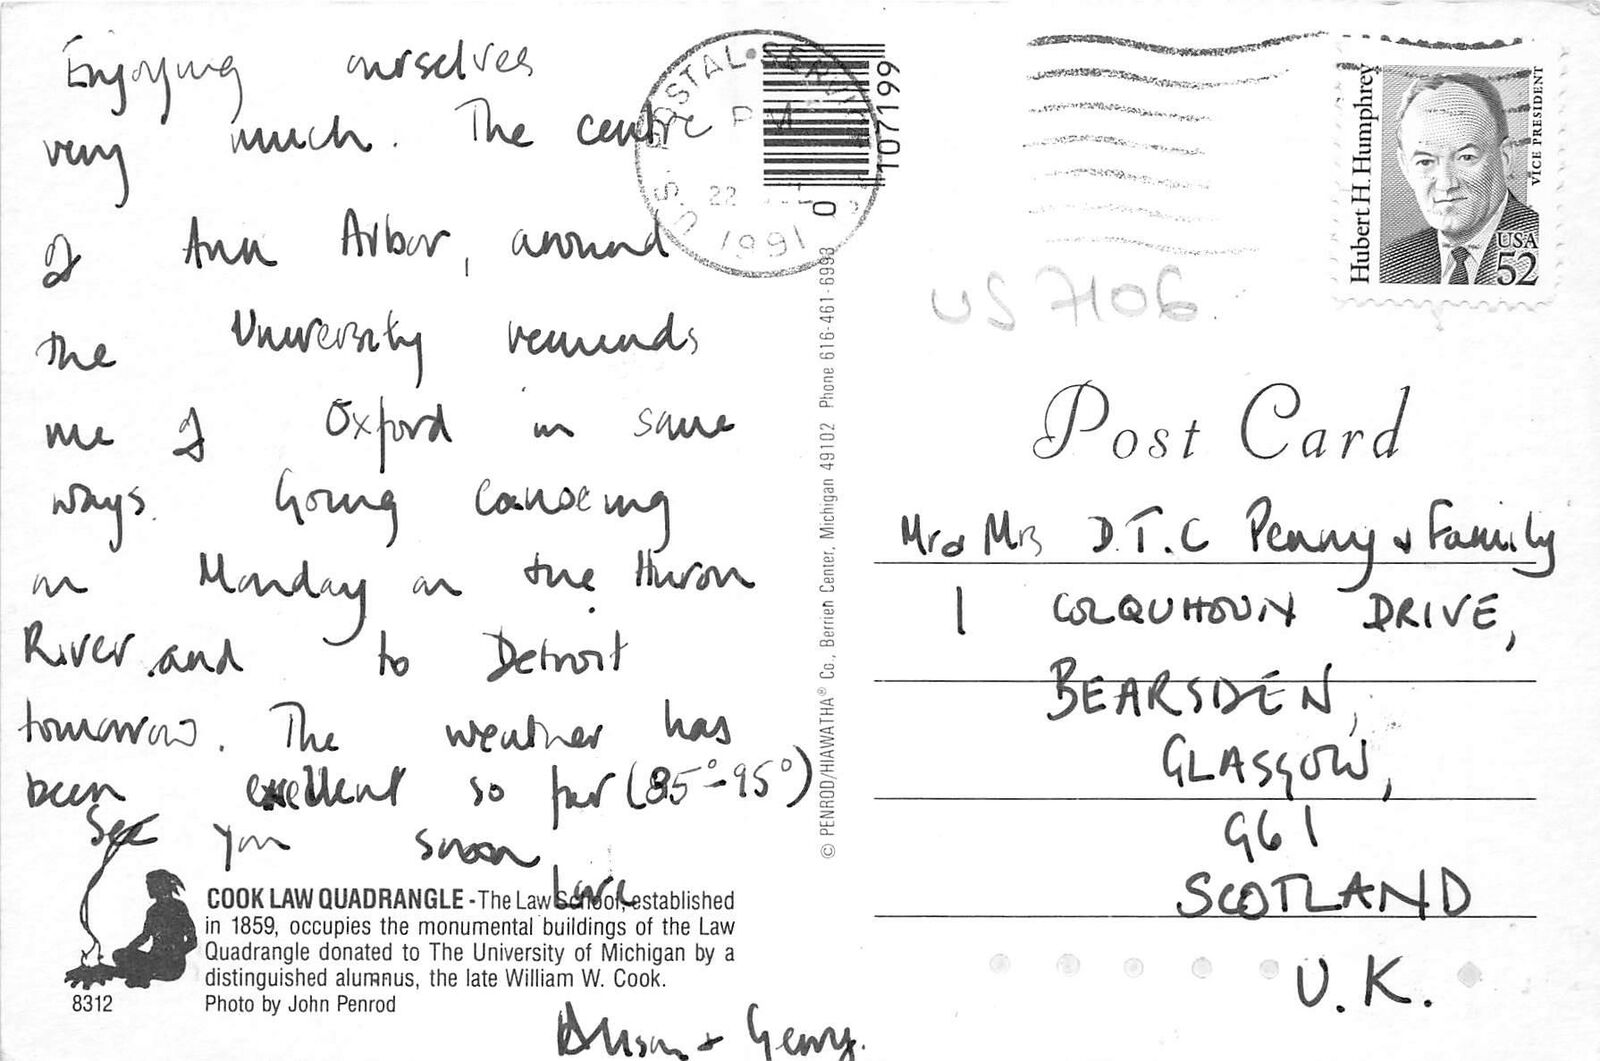 Enjoying ourselves
very much. The centre
of Ann Arbor, around
the University reminds
me of Oxford in some
ways. Going canoeing
on Monday on the Huron
River and to Detroit
tomorrow. The weather has
been excellent so far (85°-95°)
See you soon
Love
Alison + Gerry.
COOK LAW QUADRANGLE - The Law School, established
in 1859, occupies the monumental buildings of the Law
Quadrangle donated to The University of Michigan by a
distinguished alumnus, the late William W. Cook.
Photo by John Penrod
8312
© PENROD/HIAWATHA® Co., Berrien Center, Michigan 49102 Phone 616-461-6993
0 107199
U.S. POSTAL SERVICE
PM
22
1991
Hubert H. Humphrey
VICE PRESIDENT
USA
52
US 7106
Post Card
Mr & Mrs D.T.C Penny & Family
1 COLQUHOUN DRIVE,
BEARSDEN,
GLASGOW,
G61
SCOTLAND
U.K.